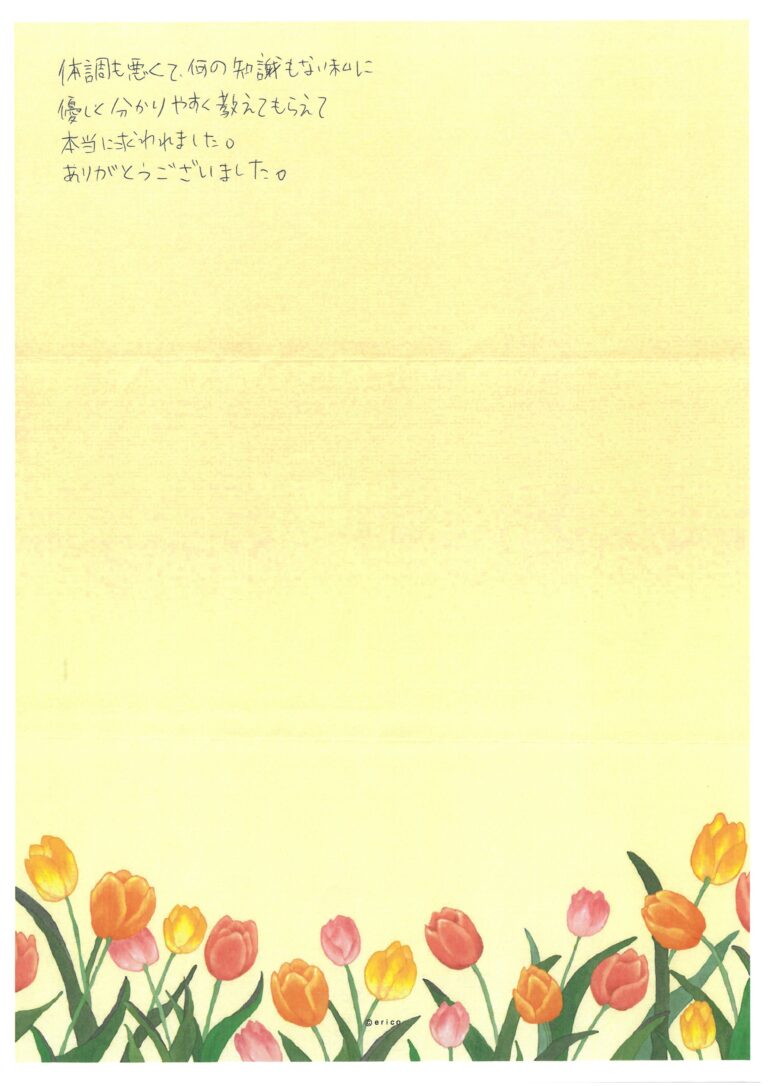 体調も悪くて、何の知識もない私に
優しく分かりやすく教えてもらえて
本当に求われました。
ありがとうございました。
©erico.